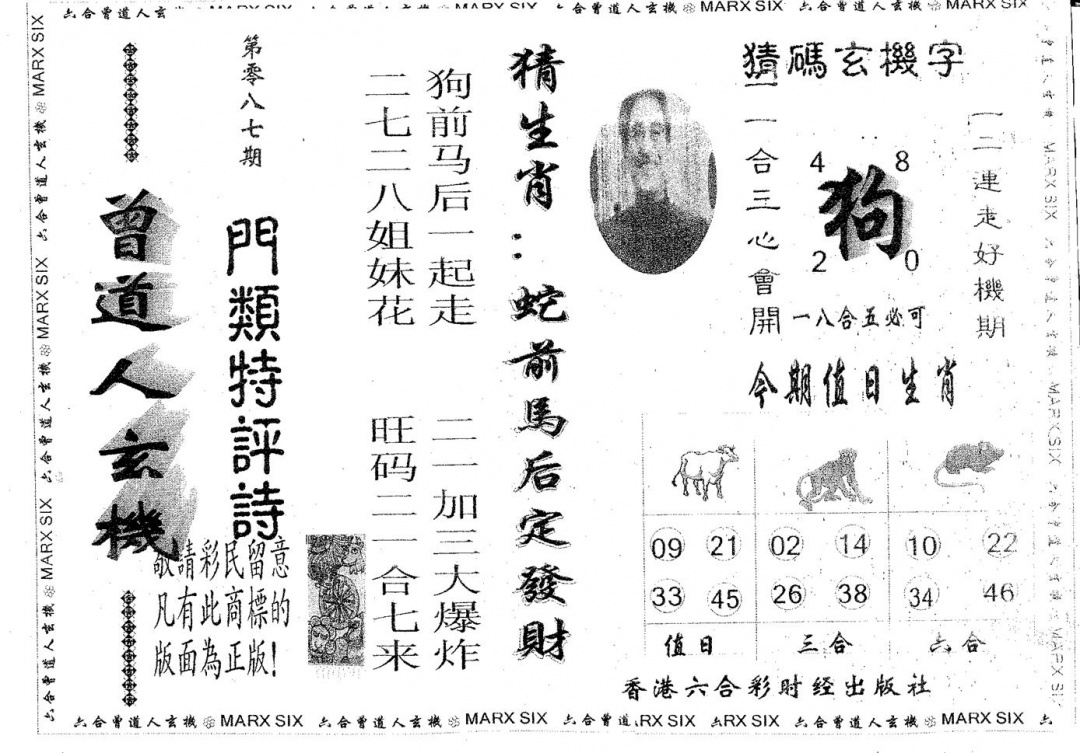 六合曾道人玄 MARX SIX 六合曾道人玄機 MARX SIX 六合曾道人玄機 MARX SIX 六合曾道人玄機 MARX SIX
六合曾道人玄機 MARX SIX 六合曾道人玄機 MARX SIX 六合曾道人玄機 MARX SIX
曾道人玄機
第零八七期
門類特評詩
敬請彩民留意
凡有此商標的
版面為正版!
狗前马后一起走
二七二八姐妹花
二一加三大爆炸
旺码二一合七来
猜生肖:蛇前馬后定發財
猜碼玄機字
一二連走好機期
4 8
狗
2 0
二一合三心會開
一八合五必可
今期值日生肖
09 21 02 14 10 22
33 45 26 38 34 46
值日 三合 六合
香港六合彩财经出版社
MARX SIX MARX SIX MARX SIX
六合曾道人玄機 MARX SIX 六合曾道人玄機 MARX SIX 六合曾道 RX SIX ARX SIX 六合曾道人玄機 MARX SIX 六